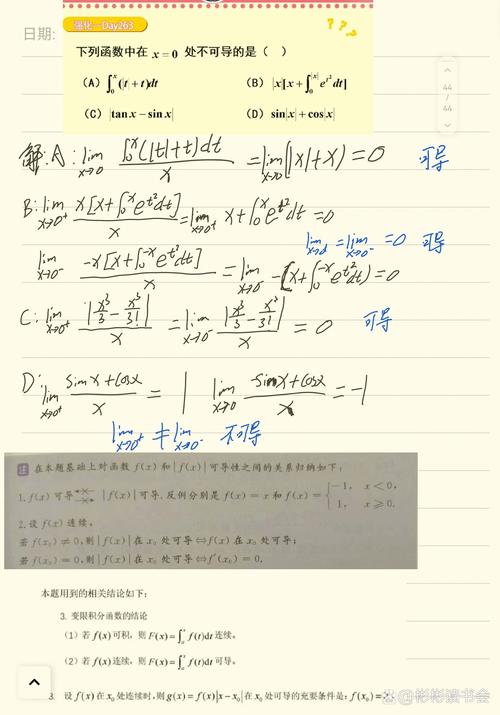 日期:
强化—Day263
? ? ?
下列函数中在 x = 0 处不可导的是（ ）
(A) ∫₀ˣ(|t|+t)dt (B) |x|[x+∫₀^{|x|}e^{t²}dt]
(C) |tan x − sin x| (D) sin|x|+cos|x|
44
/
44
解: A: lim_{x→0} ∫₀ˣ(|t|+t)dt / x = lim_{x→0}(|x|+x) = 0 可导
B: lim_{x→0⁺} x[x+∫₀ˣe^{t²}dt] / x = lim_{x→0⁺} x+∫₀ˣe^{t²}dt = 0
lim_{x→0⁺} = lim_{x→0⁻} = 0 可导
lim_{x→0⁻} -x[x+∫₀^{-x}e^{t²}dt] / x = lim_{x→0⁻} -(x+∫₀^{-x}e^{t²}dt) = 0
C: lim_{x→0⁺} |x³/3 - x³/3!| / x = lim_{x→0⁻} |x³/3 - x³/3!| / x = 0 可导
D: lim_{x→0⁺} sinx+cosx / x = 1 lim_{x→0} -sinx+cosx / x = -1
lim_{x→0⁺} ≠ lim_{x→0⁻} 不可导
注 在本题基础上对函数 f(x) 和 |f(x)| 可导性之间的关系归纳如下:
1. f(x) 可导 |f(x)| 可导, 反例分别是 f(x) = x 和 f(x) = { −1, x < 0,
1, x ≥ 0.
2. 设 f(x) 连续。
若 f(x₀) ≠ 0, 则 |f(x)| 在 x₀ 处可导 ⇔ f(x) 在 x₀ 处可导;
若 f(x₀) = 0, 则 |f(x)| 在 x₀ 处可导 ⇔ f′(x₀) = 0.
本题用到的相关结论如下:
3. 变限积分函数的结论
(1) 若 f(x) 可积, 则 F(x) = ∫ₐˣ f(t)dt 连续。
(2) 若 f(x) 连续, 则 F(x) = ∫ₐˣ f(t)dt 可导。
设 f(x) 在 x₀ 处连续时, 则 g(x) = f(x)|x − x₀| 在 x₀ 处可导的充要条件是: f(x₀) =
@彬彬读书会